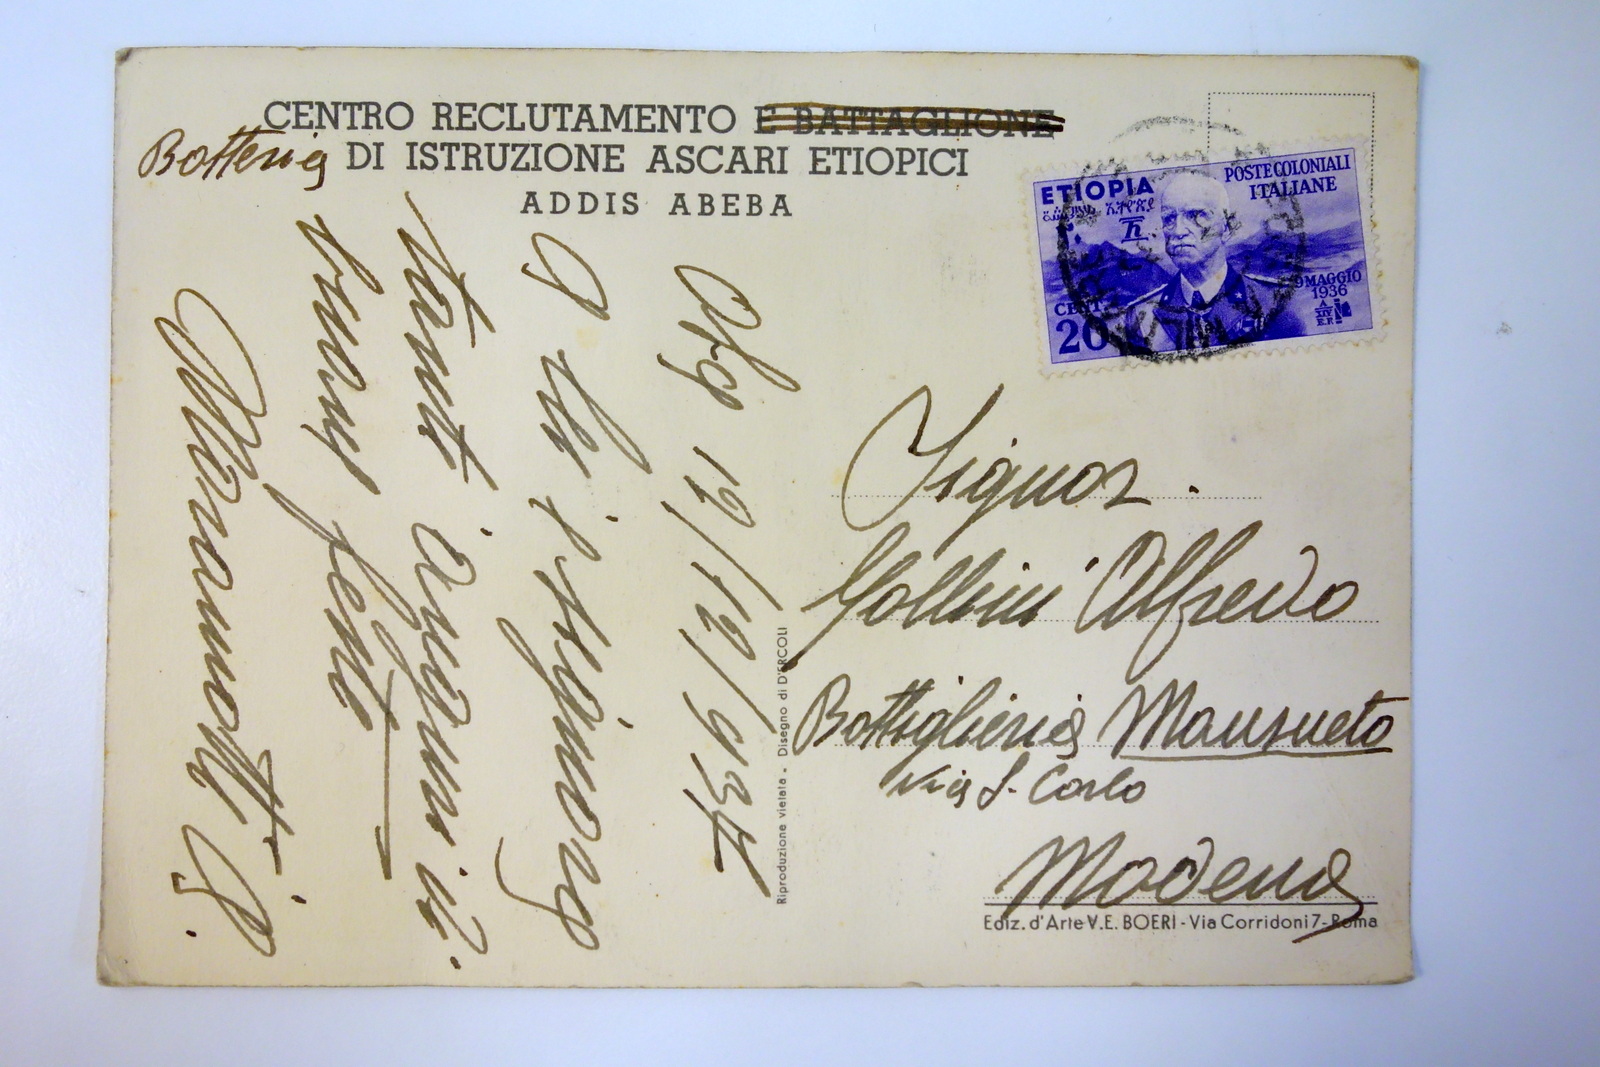 CENTRO RECLUTAMENTO E BATTAGLIONE
Batteria DI ISTRUZIONE ASCARI ETIOPICI
ADDIS ABEBA
ETIOPIA
POSTE COLONIALI
ITALIANE
ኢትዮጵያ
9 MAGGIO
1936
A
XIV
E.F.
CENT.
20
12/12/937
A lei e famiglia
tanti auguri di
buone feste
Signor.
Gollini Alfredo
Bottiglieria Mansueto
Via S. Carlo
Modena
Riproduzione vietata - Disegno di D'ERCOLI
Ediz. d'Arte V.E. BOERI - Via Corridoni 7 - Roma